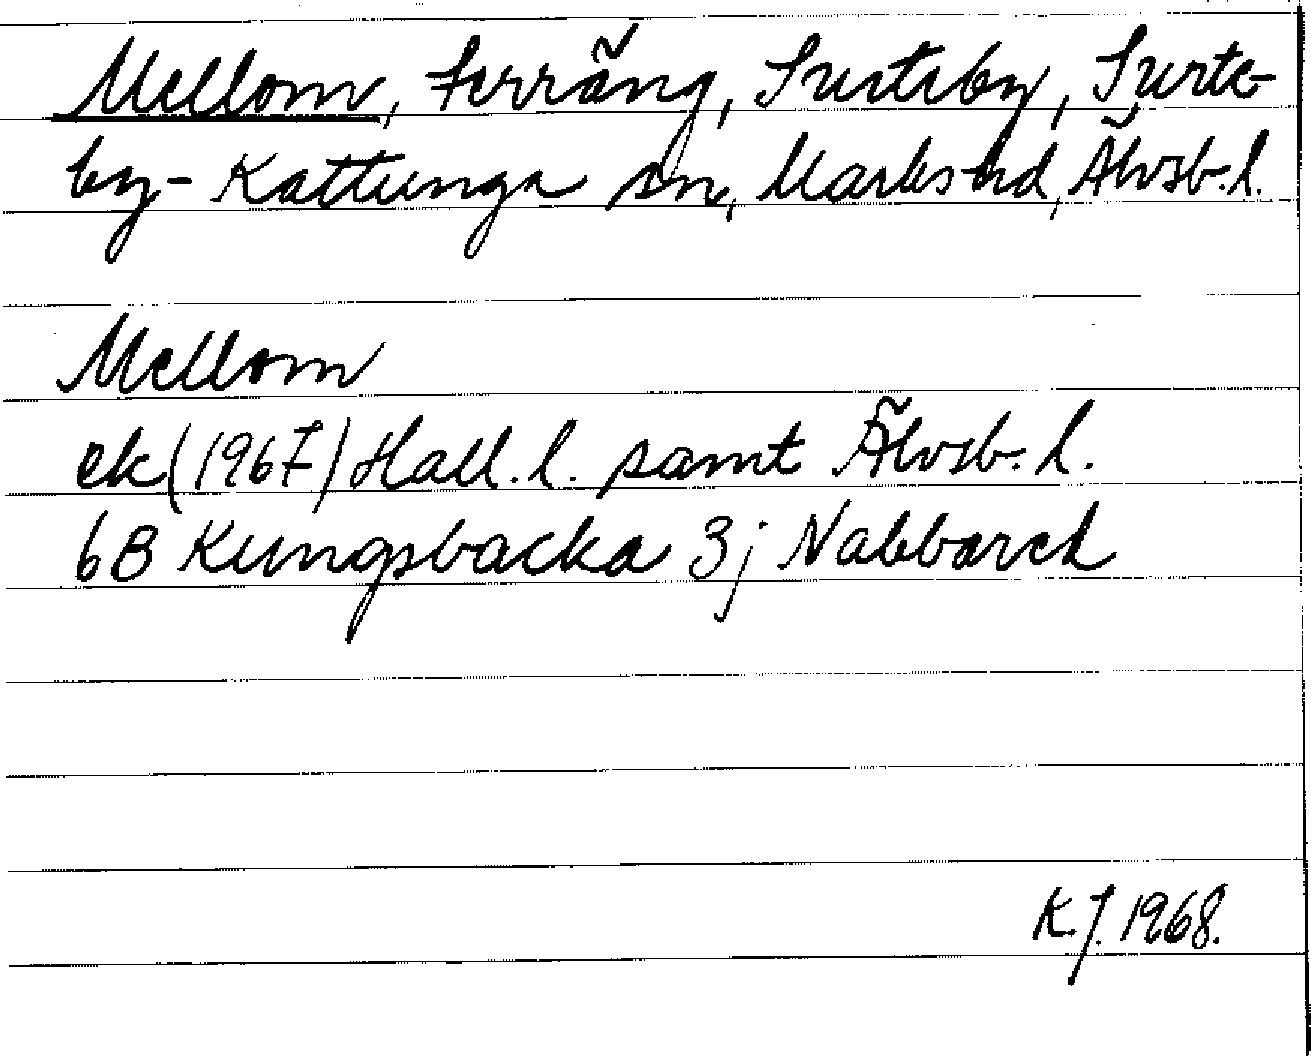 Mellom, Ferräng, Surteby, Surte-
by-Kattunga sn, Marks hd, Älvsb.l.
Mellom
ek(1967) Hall.l. samt Älvsb.l.
6B Kungsbacka 3j Nabbared
K.J. 1968.